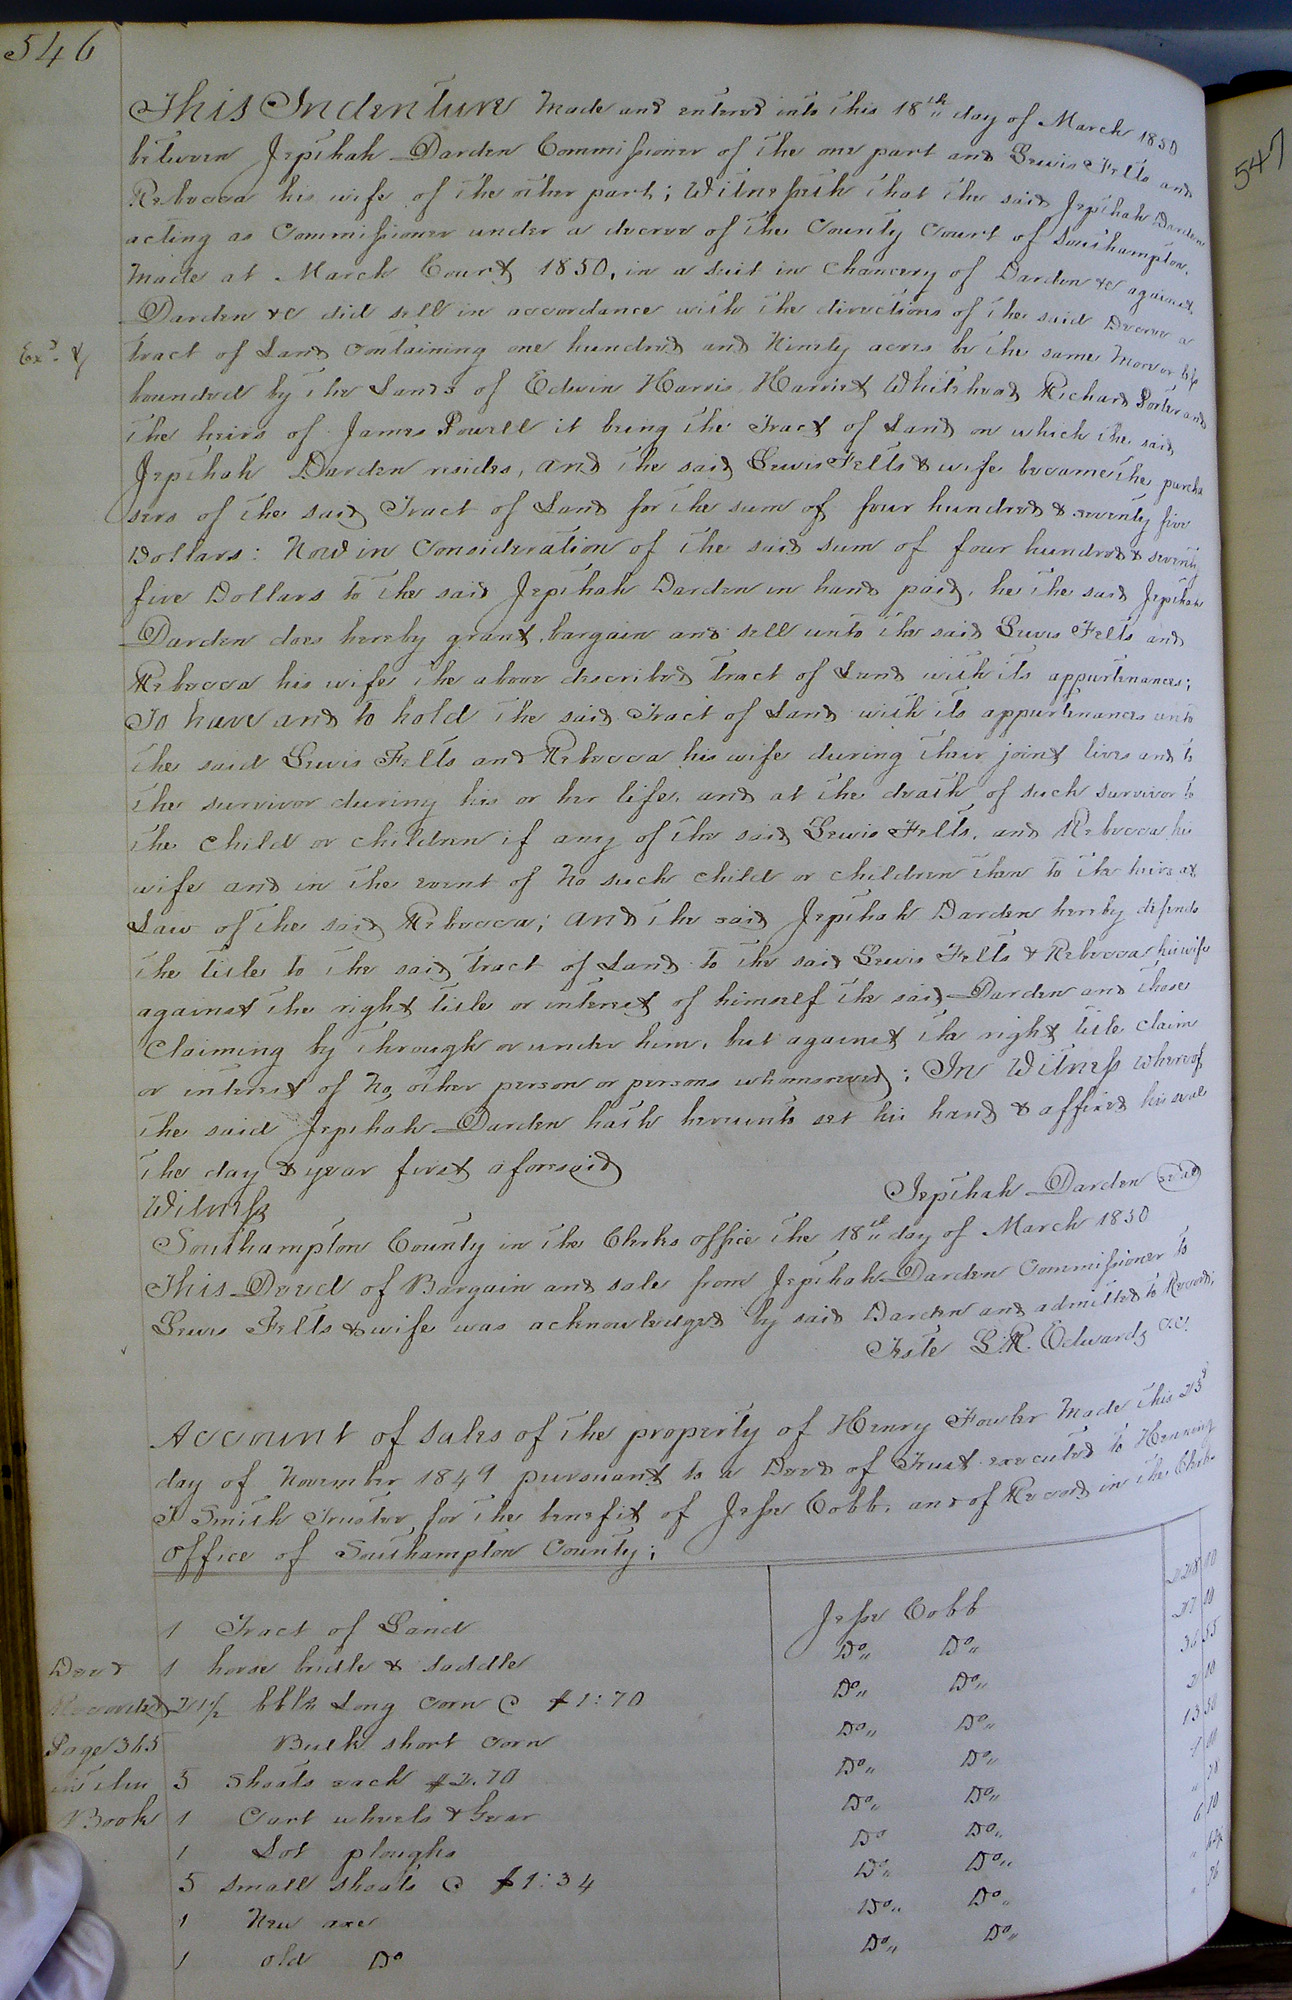 546
This Indenture Made and entered into this 18th day of March 1850
between Jepthah Darden Commissioner of the one part and Lewis Felts and
Rebecca his wife of the other part; Witnesseth that the said Jepthah Darden
acting as Commissioner under a decree of the County Court of Southampton,
Made at March Court 1850, in a suit in Chancery of Darden &c against
Darden &c did sell in accordance with the directions of the said Decree a
Exd. &
tract of Land Containing one hundred and Ninety acres be the same More or less
bounded by the Lands of Edwin Harris, Harriet Whitehead Richard Porter and
the heirs of James Powell it being the Tract of Land on which the said
Jepthah Darden resides, and the said Lewis Felts & wife became the purcha
sers of the said Tract of Land for the sum of four hundred & seventy five
Dollars: Now in Consideration of the said sum of four hundred & seventy
five Dollars to the said Jepthah Darden in hand paid, he the said Jepthah
Darden does hereby grant, bargain and sell unto the said Lewis Felts and
Rebecca his wife the above described tract of Land with its appurtenances;
To have and to hold the said Tract of Land with its appurtenances unto
the said Lewis Felts and Rebecca his wife during their joint lives and to
the survivor during his or her life, and at the death of such survivor to
the child or children if any of the said Lewis Felts, and Rebecca his
wife and in the event of No such child or children then to the heirs at
Law of the said Rebecca; and the said Jepthah Darden hereby defends
the title to the said tract of Land to the said Lewis Felts & Rebecca his wife
against the right title or interest of himself the said Darden and those
Claiming by through or under him, but against the right title claim
or interest of No other person or persons whomsoever; In Witness whereof,
the said Jepthah Darden hath hereunto set his hand & affixed his seal
the day & year first aforesaid
Jepthah Darden seal
Witness
Southampton County in the Clerks office the 18th day of March 1850
This Deed of Bargain and sale from Jepthah Darden Commissioner to
Lewis Felts & wife was acknowledged by said Darden and admitted to Record;
Teste L.R. Edwards C.C.
Account of sales of the property of Henry Fowler Made this 23d
day of November 1849 pursuant to a Deed of Trust executed to Henning
T Smith Trustee for the benefit of Jesse Cobb, and of Record in the Clerks
Office of Southampton County;
1 Tract of Land Jesse Cobb
Deed 1 horse bridle & saddle Do,, Do,, 27 00
Recorded 21½ bbls Long Corn @ $1:70 Do,, Do,, 36 55
Page 365 Bulk short corn Do,, Do,, 2 00
in this 5 Shoats each $2.70 Do,, Do,, 13 50
Book 1 Cart wheels & Gear Do,, Do,,
1 Lot ploughs Do Do,,
5 small shoats @ $1:34 Do,, Do,,
1 New axe Do,, Do,,
1 old Do Do,, Do,,
547